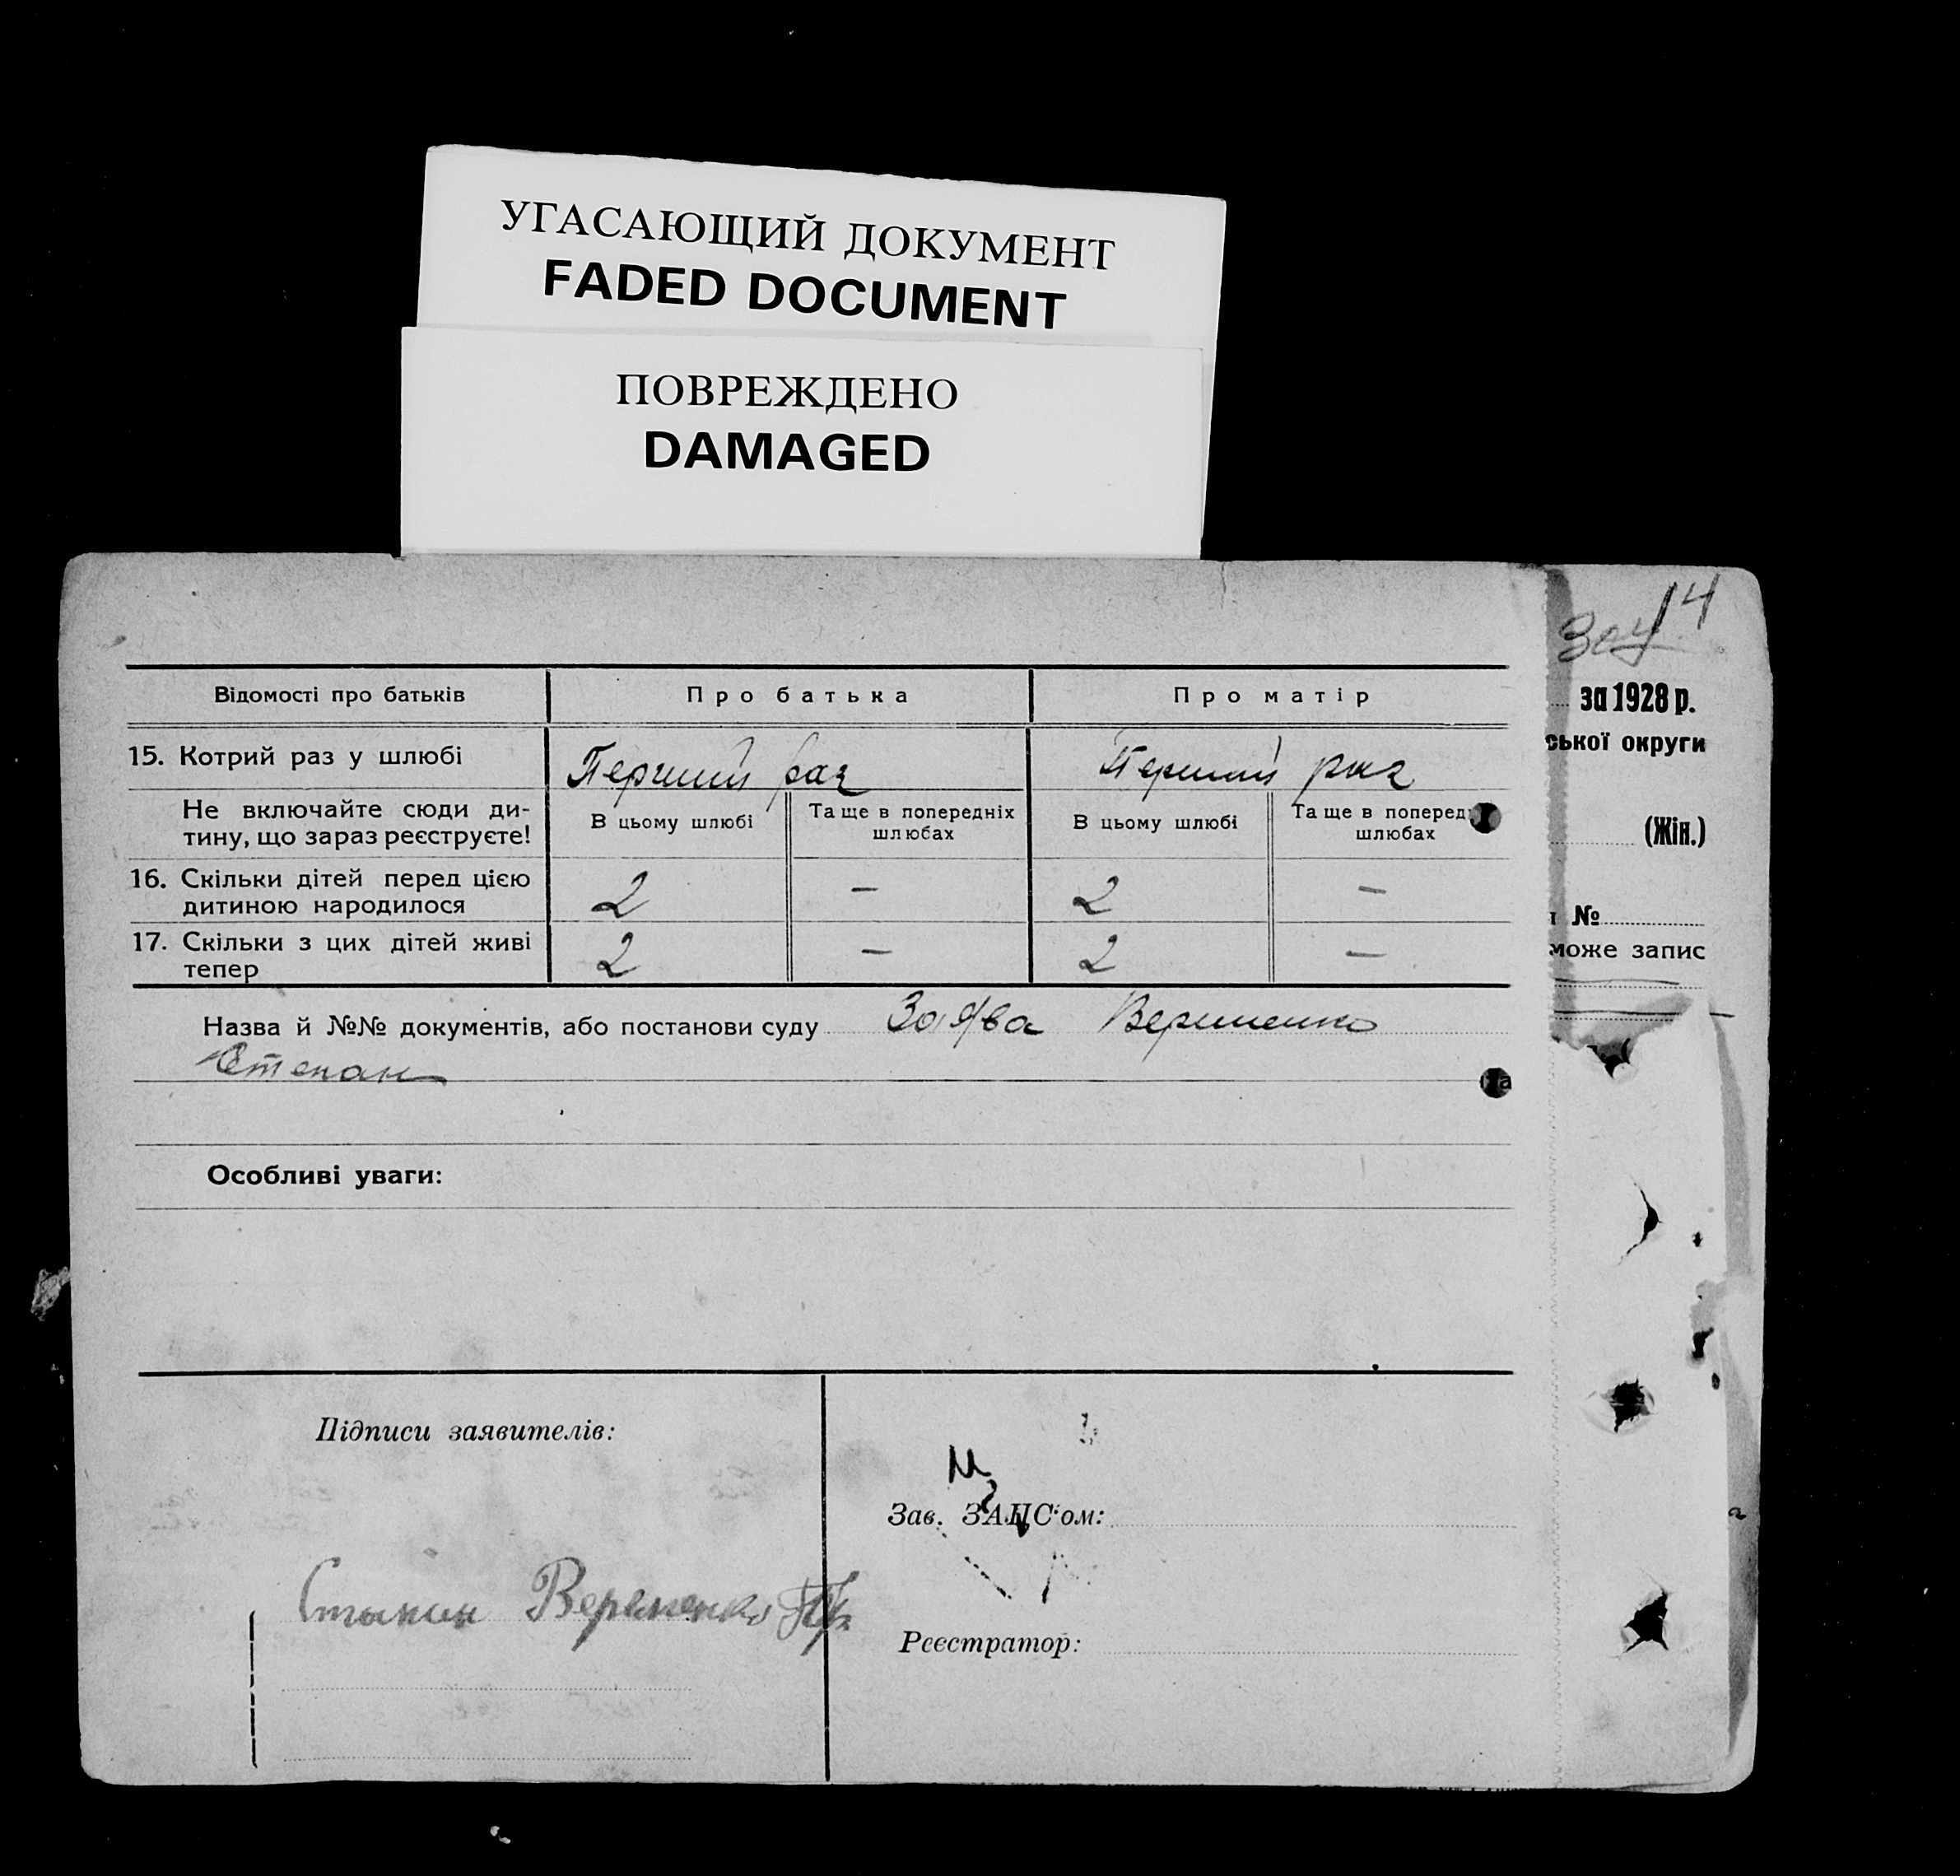 УГАСАЮЩИЙ ДОКУМЕНТ
FADED DOCUMENT
ПОВРЕЖДЕНО
DAMAGED
14
за 1928 р.
ської округи
(Жін.)
№
може запис
Відомості про батьків Про батька Про матір
15. Котрий раз у шлюбі Перший раз Перший раз
Не включайте сюди ди-
тину, що зараз реєструєте!
В цьому шлюбі Та ще в попередніх
шлюбах
В цьому шлюбі Та ще в поперед
шлюбах
16. Скільки дітей перед цією
дитиною народилося
2 — 2 —
17. Скільки з цих дітей живі
тепер
2 — 2 —
Назва й №№ документів, або постанови суду Заява Веременко
Степан
Особливі уваги:
Підписи заявителів:
Веременко
Зав. ЗАЦС'ом:
Реєстратор: